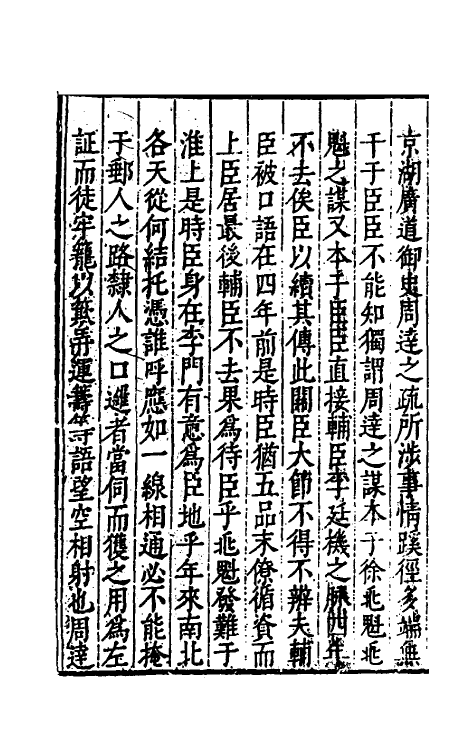 京湖廣道御史周達之疏所涉事情蹊徑多端無
干于臣臣不能知獨謂周達之謀本于徐兆魁兆
魁之謀又本于臣臣直接輔臣李廷機之脉四年
不去俟臣以續其傳此關臣大節不得不辨夫輔
臣被口語在四年前是時臣猶五品末僚循資而
上臣居最後輔臣不去果為待臣乎兆魁發難于
淮上是時臣身在李門有意為臣地乎年來南北
各天從何結托憑誰呼應如一線相通必不能掩
于郵人之路隸人之口邏者當伺而獲之用為左
証而徒牢籠以簸弄運籌等語望空相射也周達